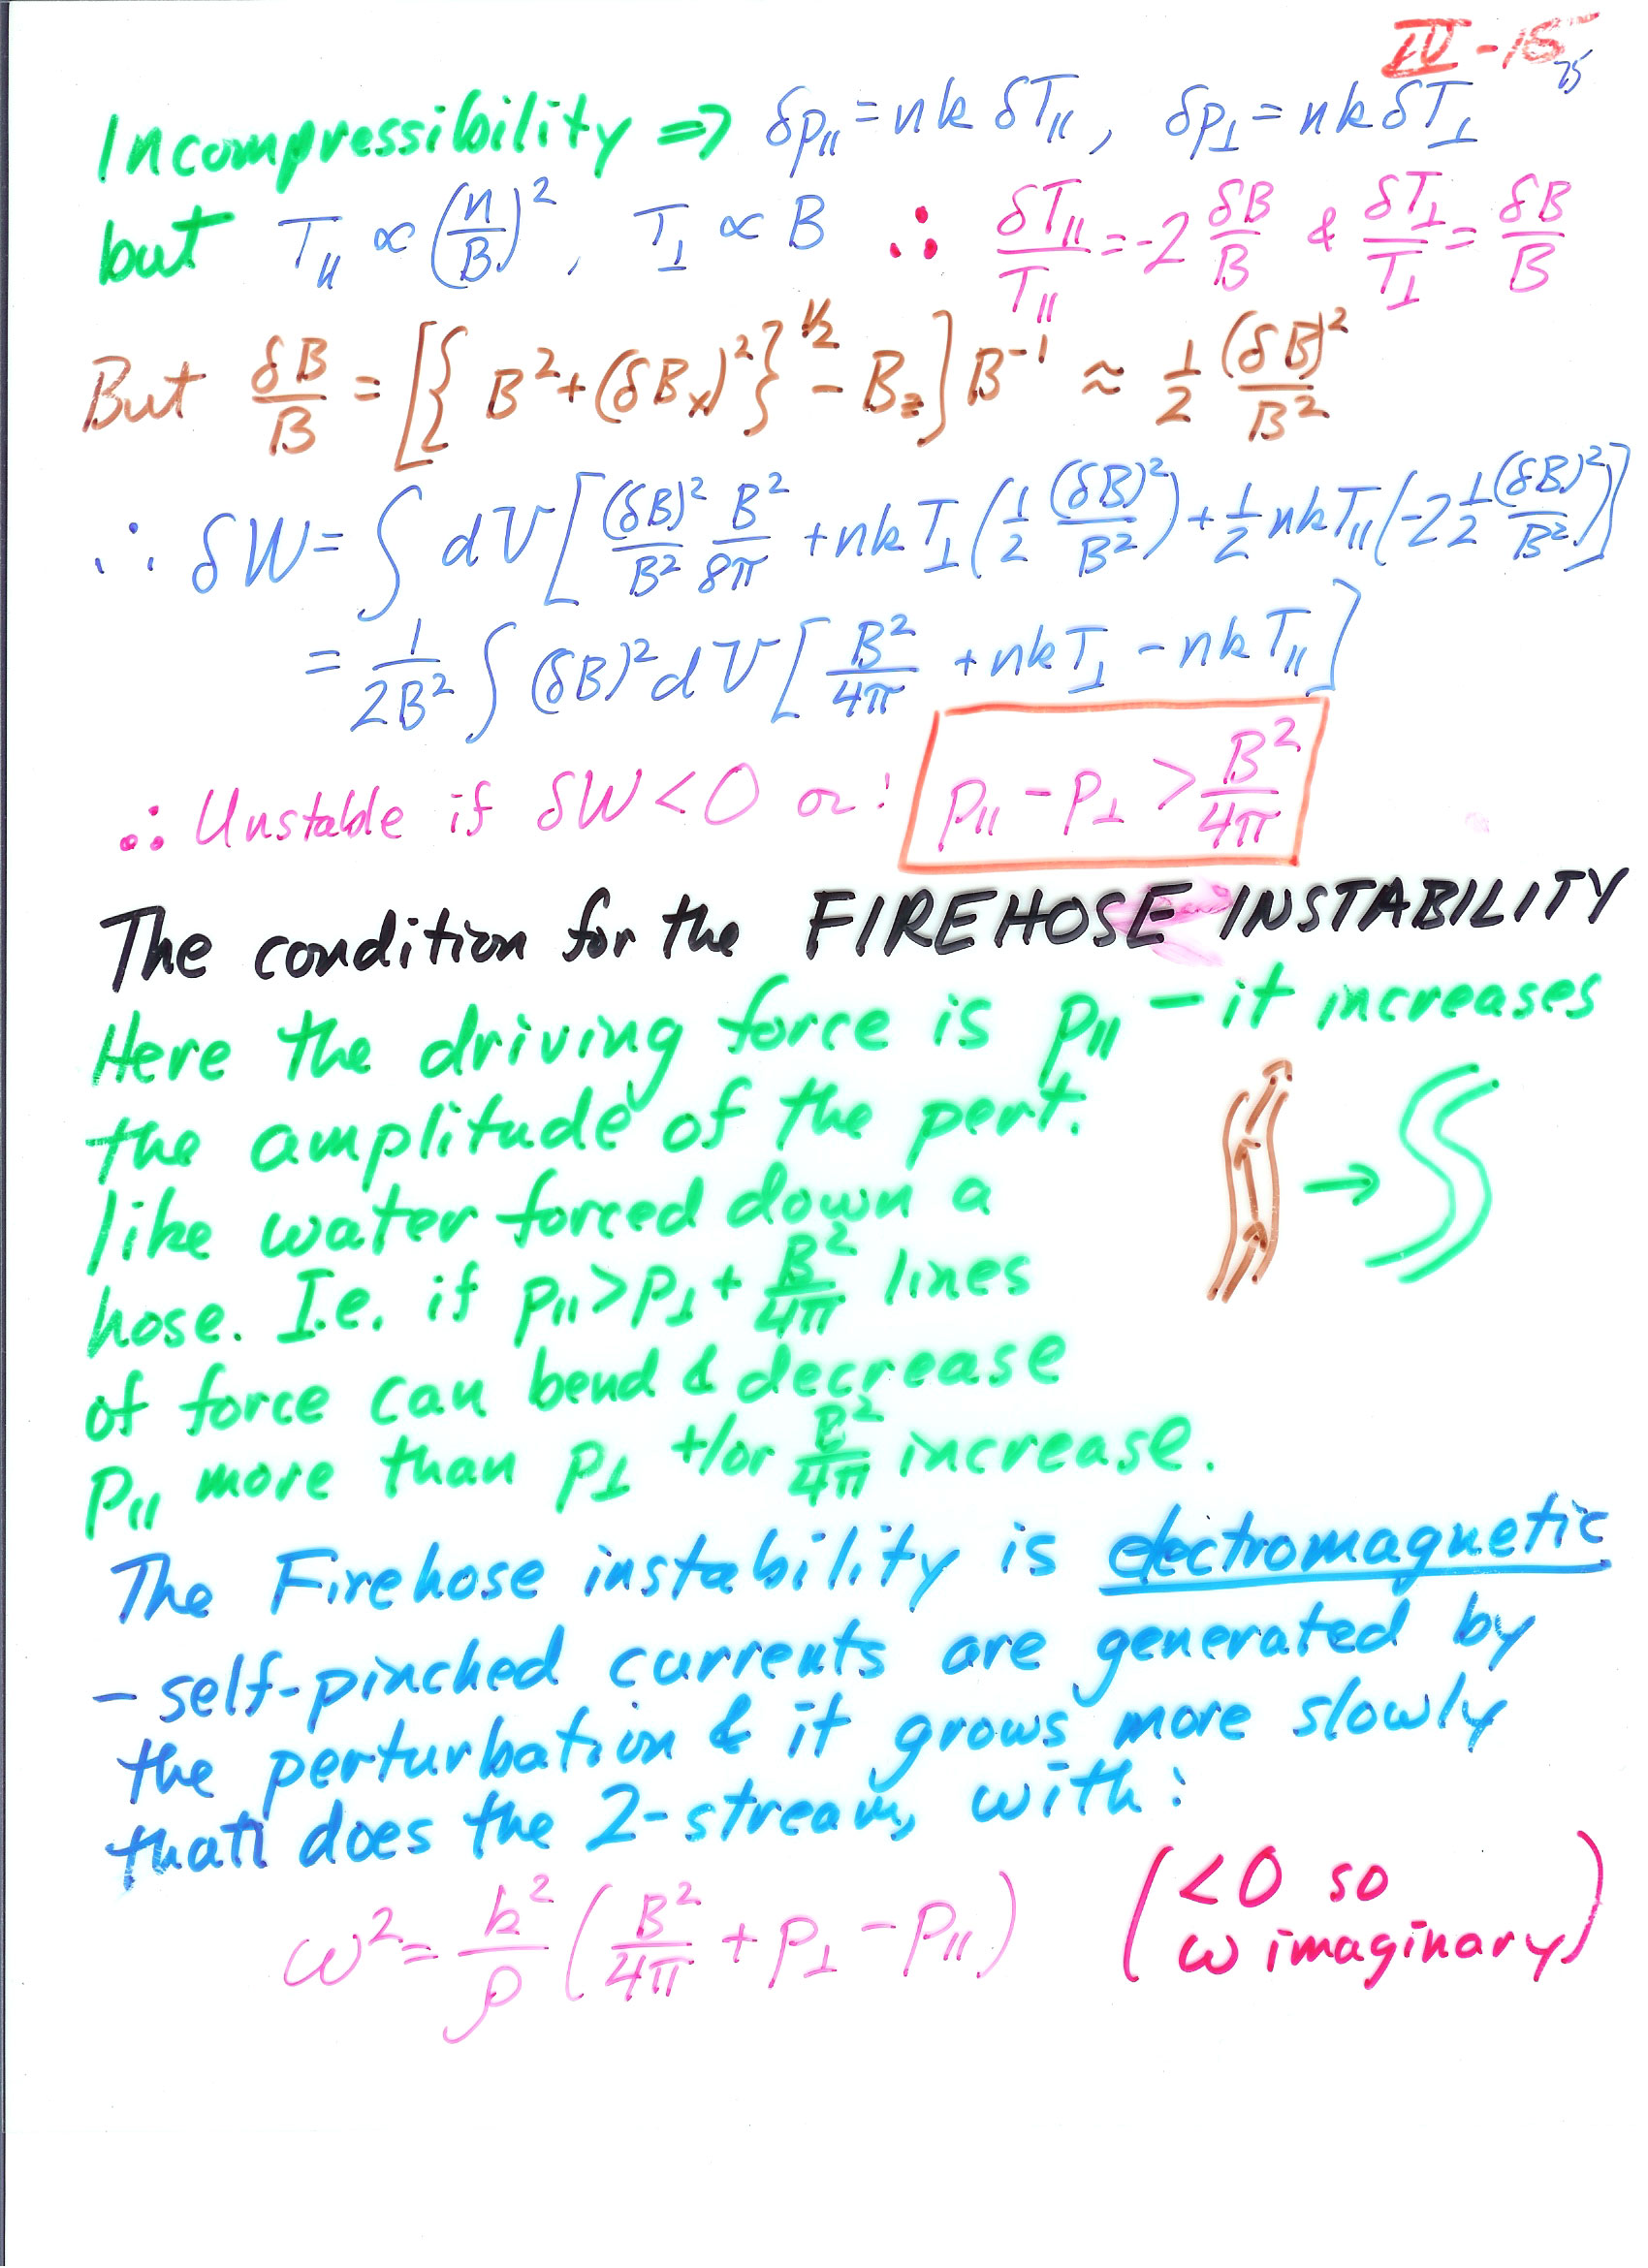 IV-15
75
Incompressibility ⇒ δp∥ = nk δT∥, δp⊥ = nk δT⊥
but T∥ ∝ (n/B)², T⊥ ∝ B ∴ δT∥/T∥ = -2 δB/B & δT⊥/T⊥ = δB/B
But δB/B = [{B² + (δBx)²}^1/2 - Bz] B⁻¹ ≈ 1/2 (δB)²/B²
∴ δW = ∫ dV [(δB)²/B² B²/8π + nkT⊥(1/2 (δB)²/B²) + 1/2 nkT∥(-2 1/2 (δB)²/B²)]
= 1/2B² ∫ (δB)² dV [B²/4π + nkT⊥ - nkT∥]
∴ Unstable if δW < 0 or: p∥ - p⊥ > B²/4π
The condition for the FIREHOSE INSTABILITY
Here the driving force is p∥ - it increases
the amplitude of the pert.
like water forced down a
hose. I.e. if p∥ > p⊥ + B²/4π lines
of force can bend & decrease
p∥ more than p⊥ +/or B²/4π increase.
The Firehose instability is electromagnetic
- self-pinched currents are generated by
the perturbation & it grows more slowly
than does the 2-stream, with:
ω² = k²/ρ (B²/4π + p⊥ - p∥) (<0 so
ω imaginary)